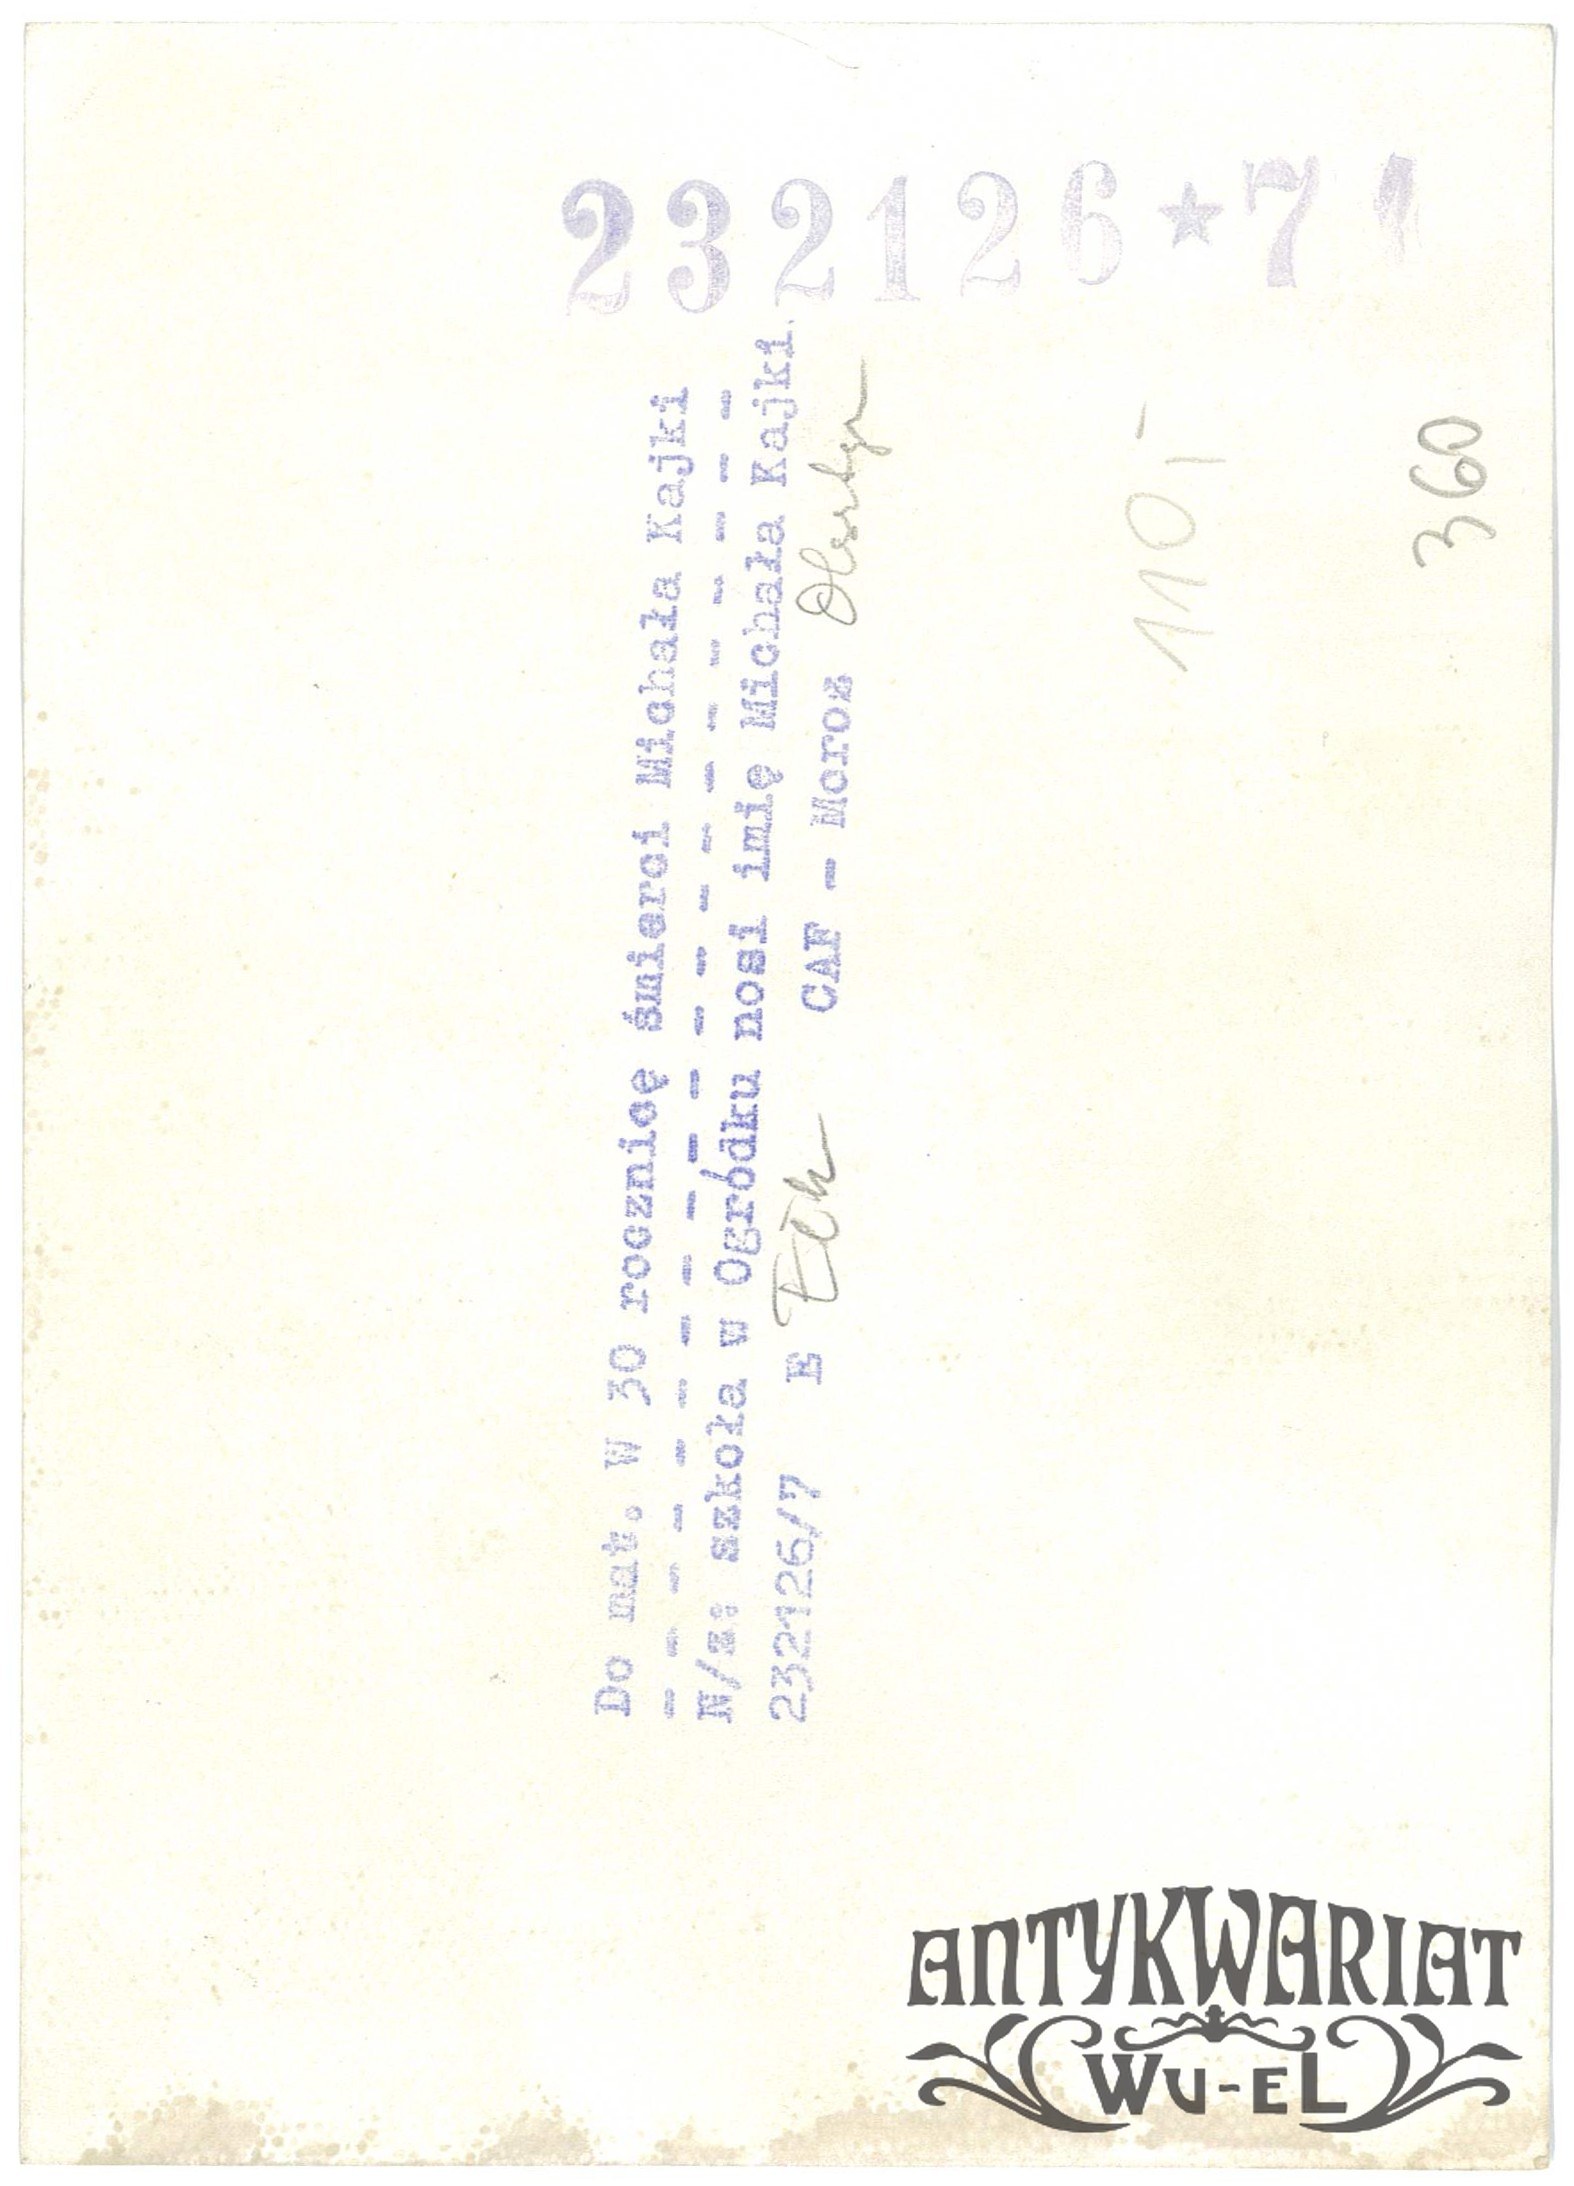 232126★71
Do mat. W 30 rocznicę śmierci Michała Kajki
- - - - - - - - - - - - - - - - - - - - - -
N/z: szkoła w Ogródku nosi imię Michała Kajki.
232126/7 E Ełk CAF - Moroz Olsztyn
110,-
360
ANTYKWARIAT
WU-EL